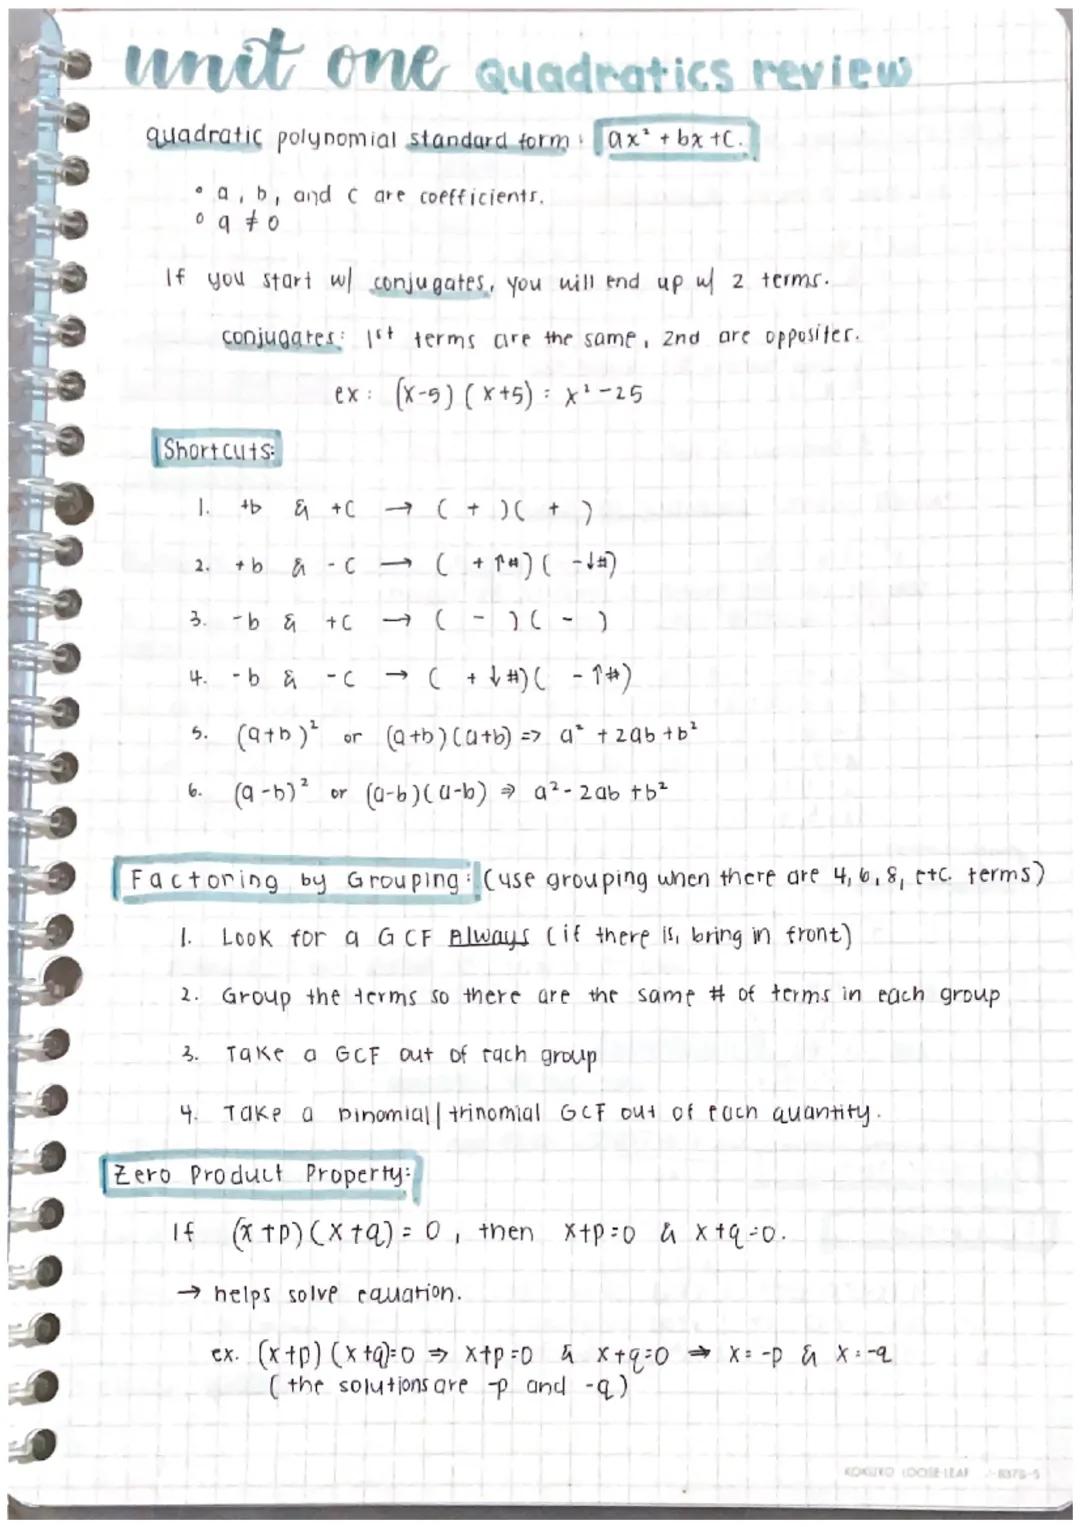 unit one quadratics review
quadratic polynomial standard form: ax² + bx + c.
° a, b, and c are coefficients.
° a ≠ 0
If you start w/ conjugates, you will end up w/ 2 terms.
conjugates: 1st terms are the same, 2nd are opposites.
ex: (x-5)(x+5) = x² - 25
Shortcuts:
1. +b & +c → ( + )( + )
2. +b & -c → ( + ↑#)( - ↓#)
3. -b & +c → ( - )( - )
4. -b & -c → ( + ↓#)( - ↑#)
5. (a+b)² or (a+b)(a+b) => a² + 2ab + b²
6. (a-b)² or (a-b)(a-b) ⇒ a² - 2ab + b²
Factoring by Grouping: (use grouping when there are 4, 6, 8, etc. terms)
1. Look for a GCF Always (if there is, bring in front)
2. Group the terms so there are the same # of terms in each group
3. Take a GCF out of each group
4. Take a binomial/trinomial GCF out of each quantity.
Zero Product Property:
If (x+p)(x+q) = 0, then x+p=0 & x+q=0.
→ helps solve equation.
ex. (x+p)(x+q)=0 ⇒ x+p=0 & x+q=0 ⇒ x=-p & x=-q
(the solutions are -p and -q)
KOKUYO LOOSE-LEAF